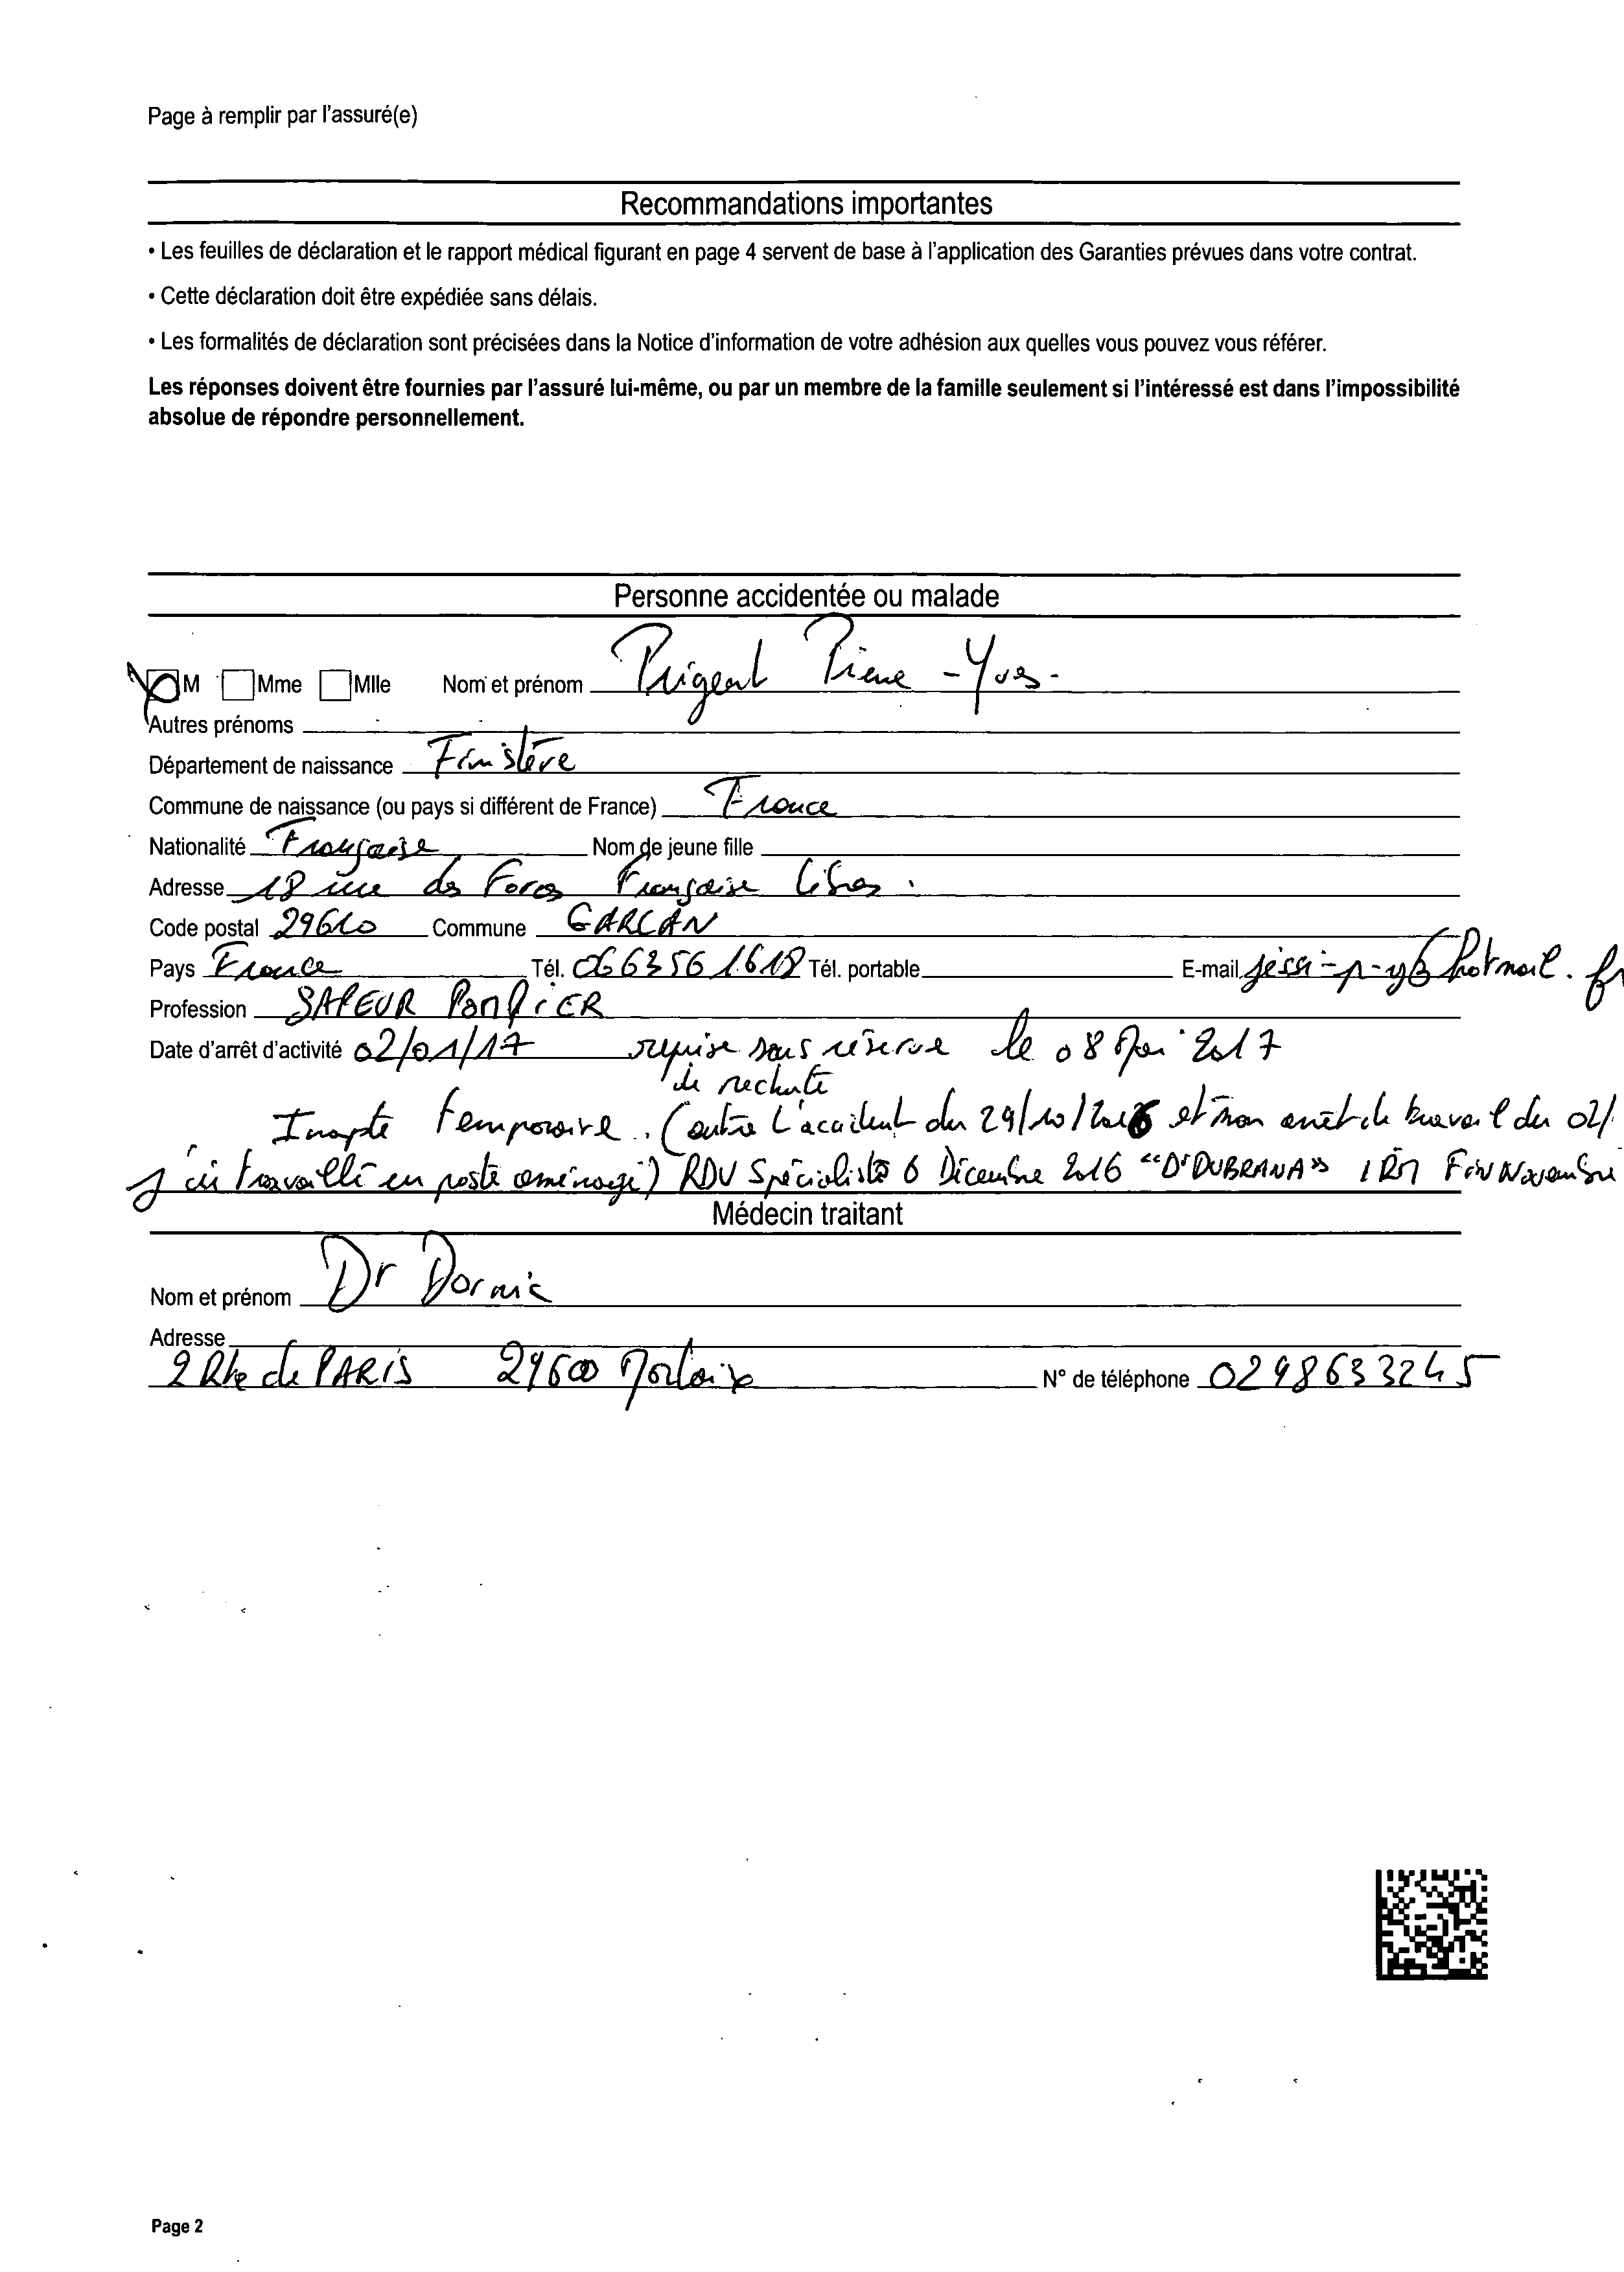 Page à remplir par l'assuré(e)
Recommandations importantes
• Les feuilles de déclaration et le rapport médical figurant en page 4 servent de base à l'application des Garanties prévues dans votre contrat.
• Cette déclaration doit être expédiée sans délais.
• Les formalités de déclaration sont précisées dans la Notice d'information de votre adhésion aux quelles vous pouvez vous référer.
Les réponses doivent être fournies par l'assuré lui-même, ou par un membre de la famille seulement si l'intéressé est dans l'impossibilité
absolue de répondre personnellement.
Personne accidentée ou malade
M Mme Mlle Nom et prénom Prigent Pierre-Yves
Autres prénoms
Département de naissance Finistère
Commune de naissance (ou pays si différent de France) France
Nationalité Française Nom de jeune fille
Adresse 18 rue des Forces Française Libres.
Code postal 29610 Commune GARLAN
Pays France Tél. 0663561618 Tél. portable E-mail hotmail.fr
Profession SAPEUR POMPIER
Date d'arrêt d'activité 02/01/17 reprise sous réserve le 08 Mai 2017
de rechute
Inapte temporaire. (entre l'accident du 29/10/2016 et mon arrêt de travail du 02/
j'ai travaillé en poste aménagé) RDV Spécialiste 6 Décembre 2016 "Dr DUBRANA" IRM Fin Novembre
Médecin traitant
Nom et prénom Dr Dornic
Adresse
2 Rte de PARIS 29600 Morlaix N° de téléphone 0298633245
Page 2